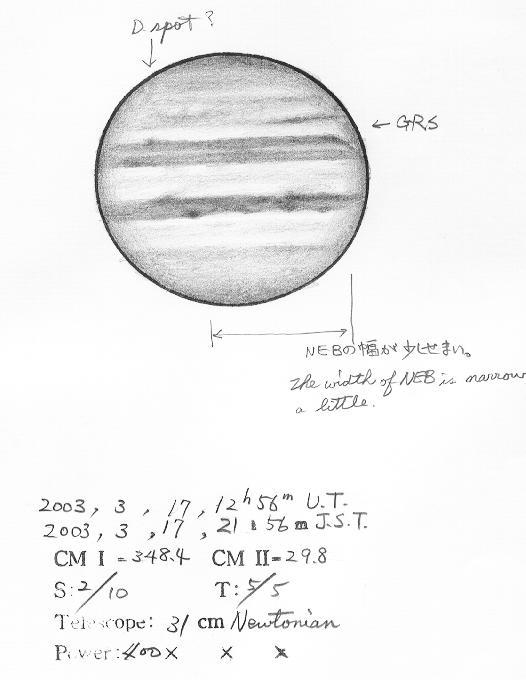 D. spot?
← GRS
NEBの幅が少しせまい。
The width of NEB is narrow
a little.
2003, 3, 17, 12h56m U.T.
2003, 3, 17, 21:56m J.S.T.
CM I = 348.4 CM II = 29.8
S: 2/10 T: 5/5
Telescope: 31 cm Newtonian
Power: 400× × ×